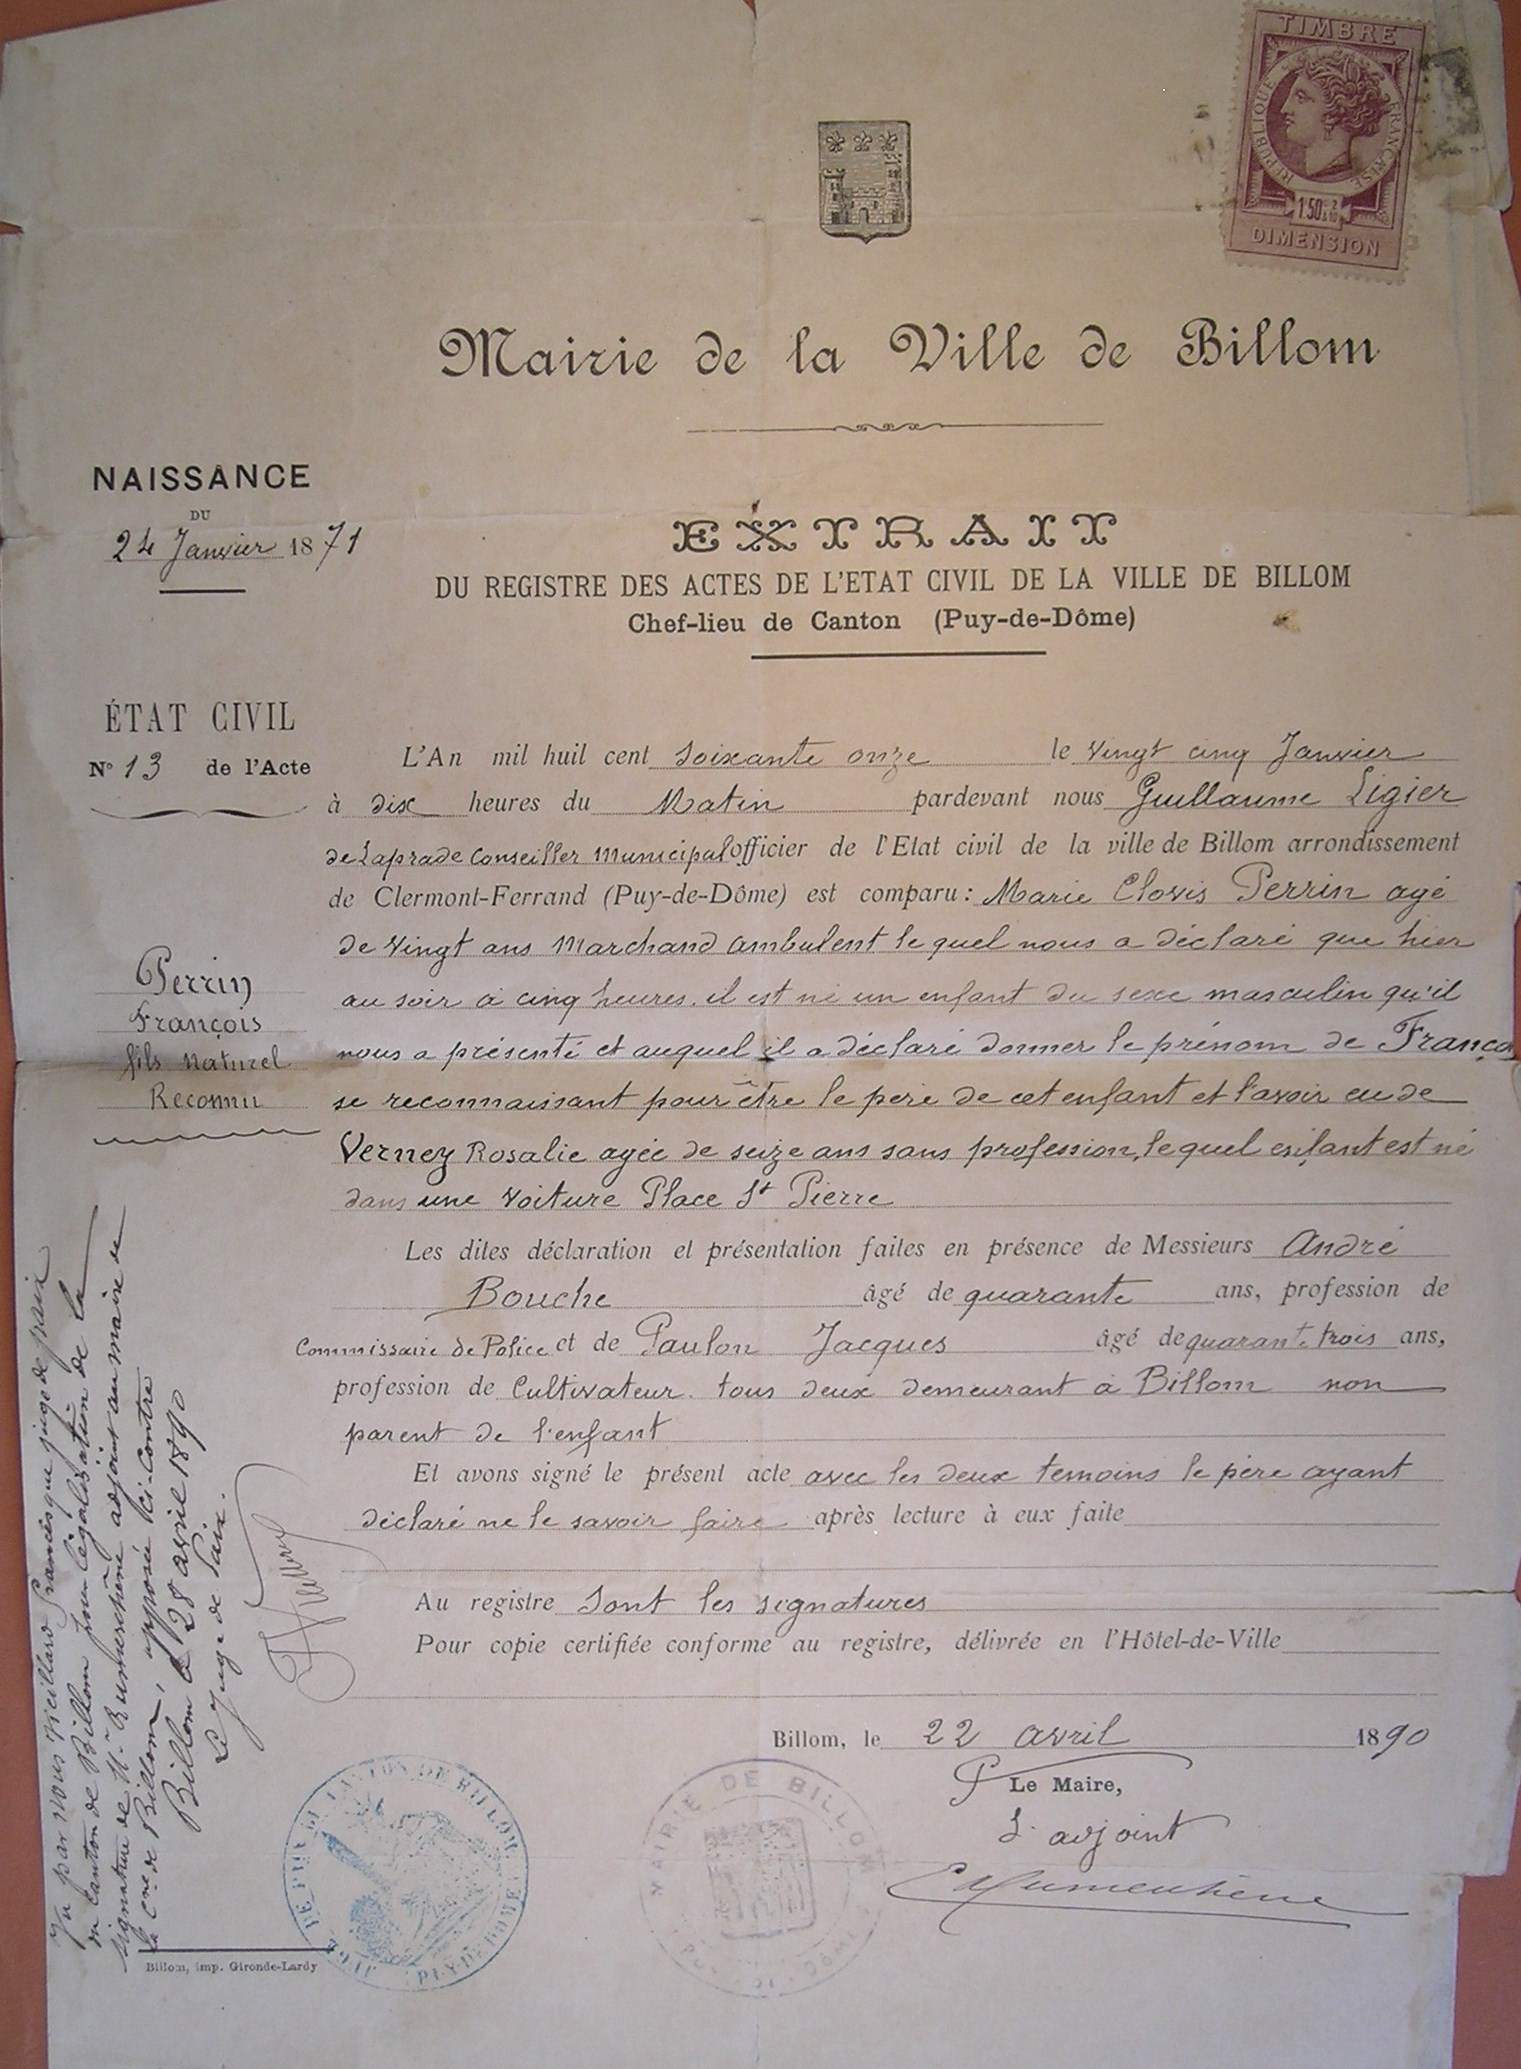 TIMBRE
RÉPUBLIQUE FRANÇAISE
1.50 2/10
DIMENSION
Mairie de la Ville de Billom
NAISSANCE
DU
24 Janvier 1871
EXTRAIT
DU REGISTRE DES ACTES DE L'ETAT CIVIL DE LA VILLE DE BILLOM
Chef-lieu de Canton (Puy-de-Dôme)
ÉTAT CIVIL
N° 13 de l'Acte
Perrin
François
fils naturel
Reconnu
L'An mil huit cent soixante onze le vingt cinq Janvier
à dix heures du Matin pardevant nous Guillaume Ligier
de Laprade Conseiller Municipal officier de l'Etat civil de la ville de Billom arrondissement
de Clermont-Ferrand (Puy-de-Dôme) est comparu : Marie Clovis Perrin agé
de vingt ans Marchand ambulent le quel nous a déclaré que hier
au soir à cinq heures. il est né un enfant du sexe masculin qu'il
nous a présenté et auquel il a déclaré donner le prénom de Franço
se reconnaissant pour être le père de cet enfant et l'avoir eu de
Verney Rosalie agée de seize ans sans profession, le quel enfant est né
dans une voiture Place St Pierre
Les dites déclaration et présentation faites en présence de Messieurs André
Bouche âgé de quarante ans, profession de
Commissaire de Police et de Paulon Jacques âgé de quarante trois ans,
profession de Cultivateur. tous deux demeurant à Billom non
parent de l'enfant
Et avons signé le présent acte avec les deux temoins le père ayant
déclaré ne le savoir faire après lecture à eux faite
Au registre sont les signatures
Pour copie certifiée conforme au registre, délivrée en l'Hôtel-de-Ville
Billom, le 22 avril 1890
P Le Maire,
L'adjoint
Vu par nous Vieillard juge de paix
du canton de Billom pour légalisation de la
signature de M. adjoint au maire de
la cne de Billom, apposée ci-contre
Billom le 28 avril 1890
Le Juge de Paix.
JUGE DE PAIX DU CANTON DE BILLOM
PUY-DE-DÔME
MAIRIE DE BILLOM
Billom, imp. Gironde-Lardy